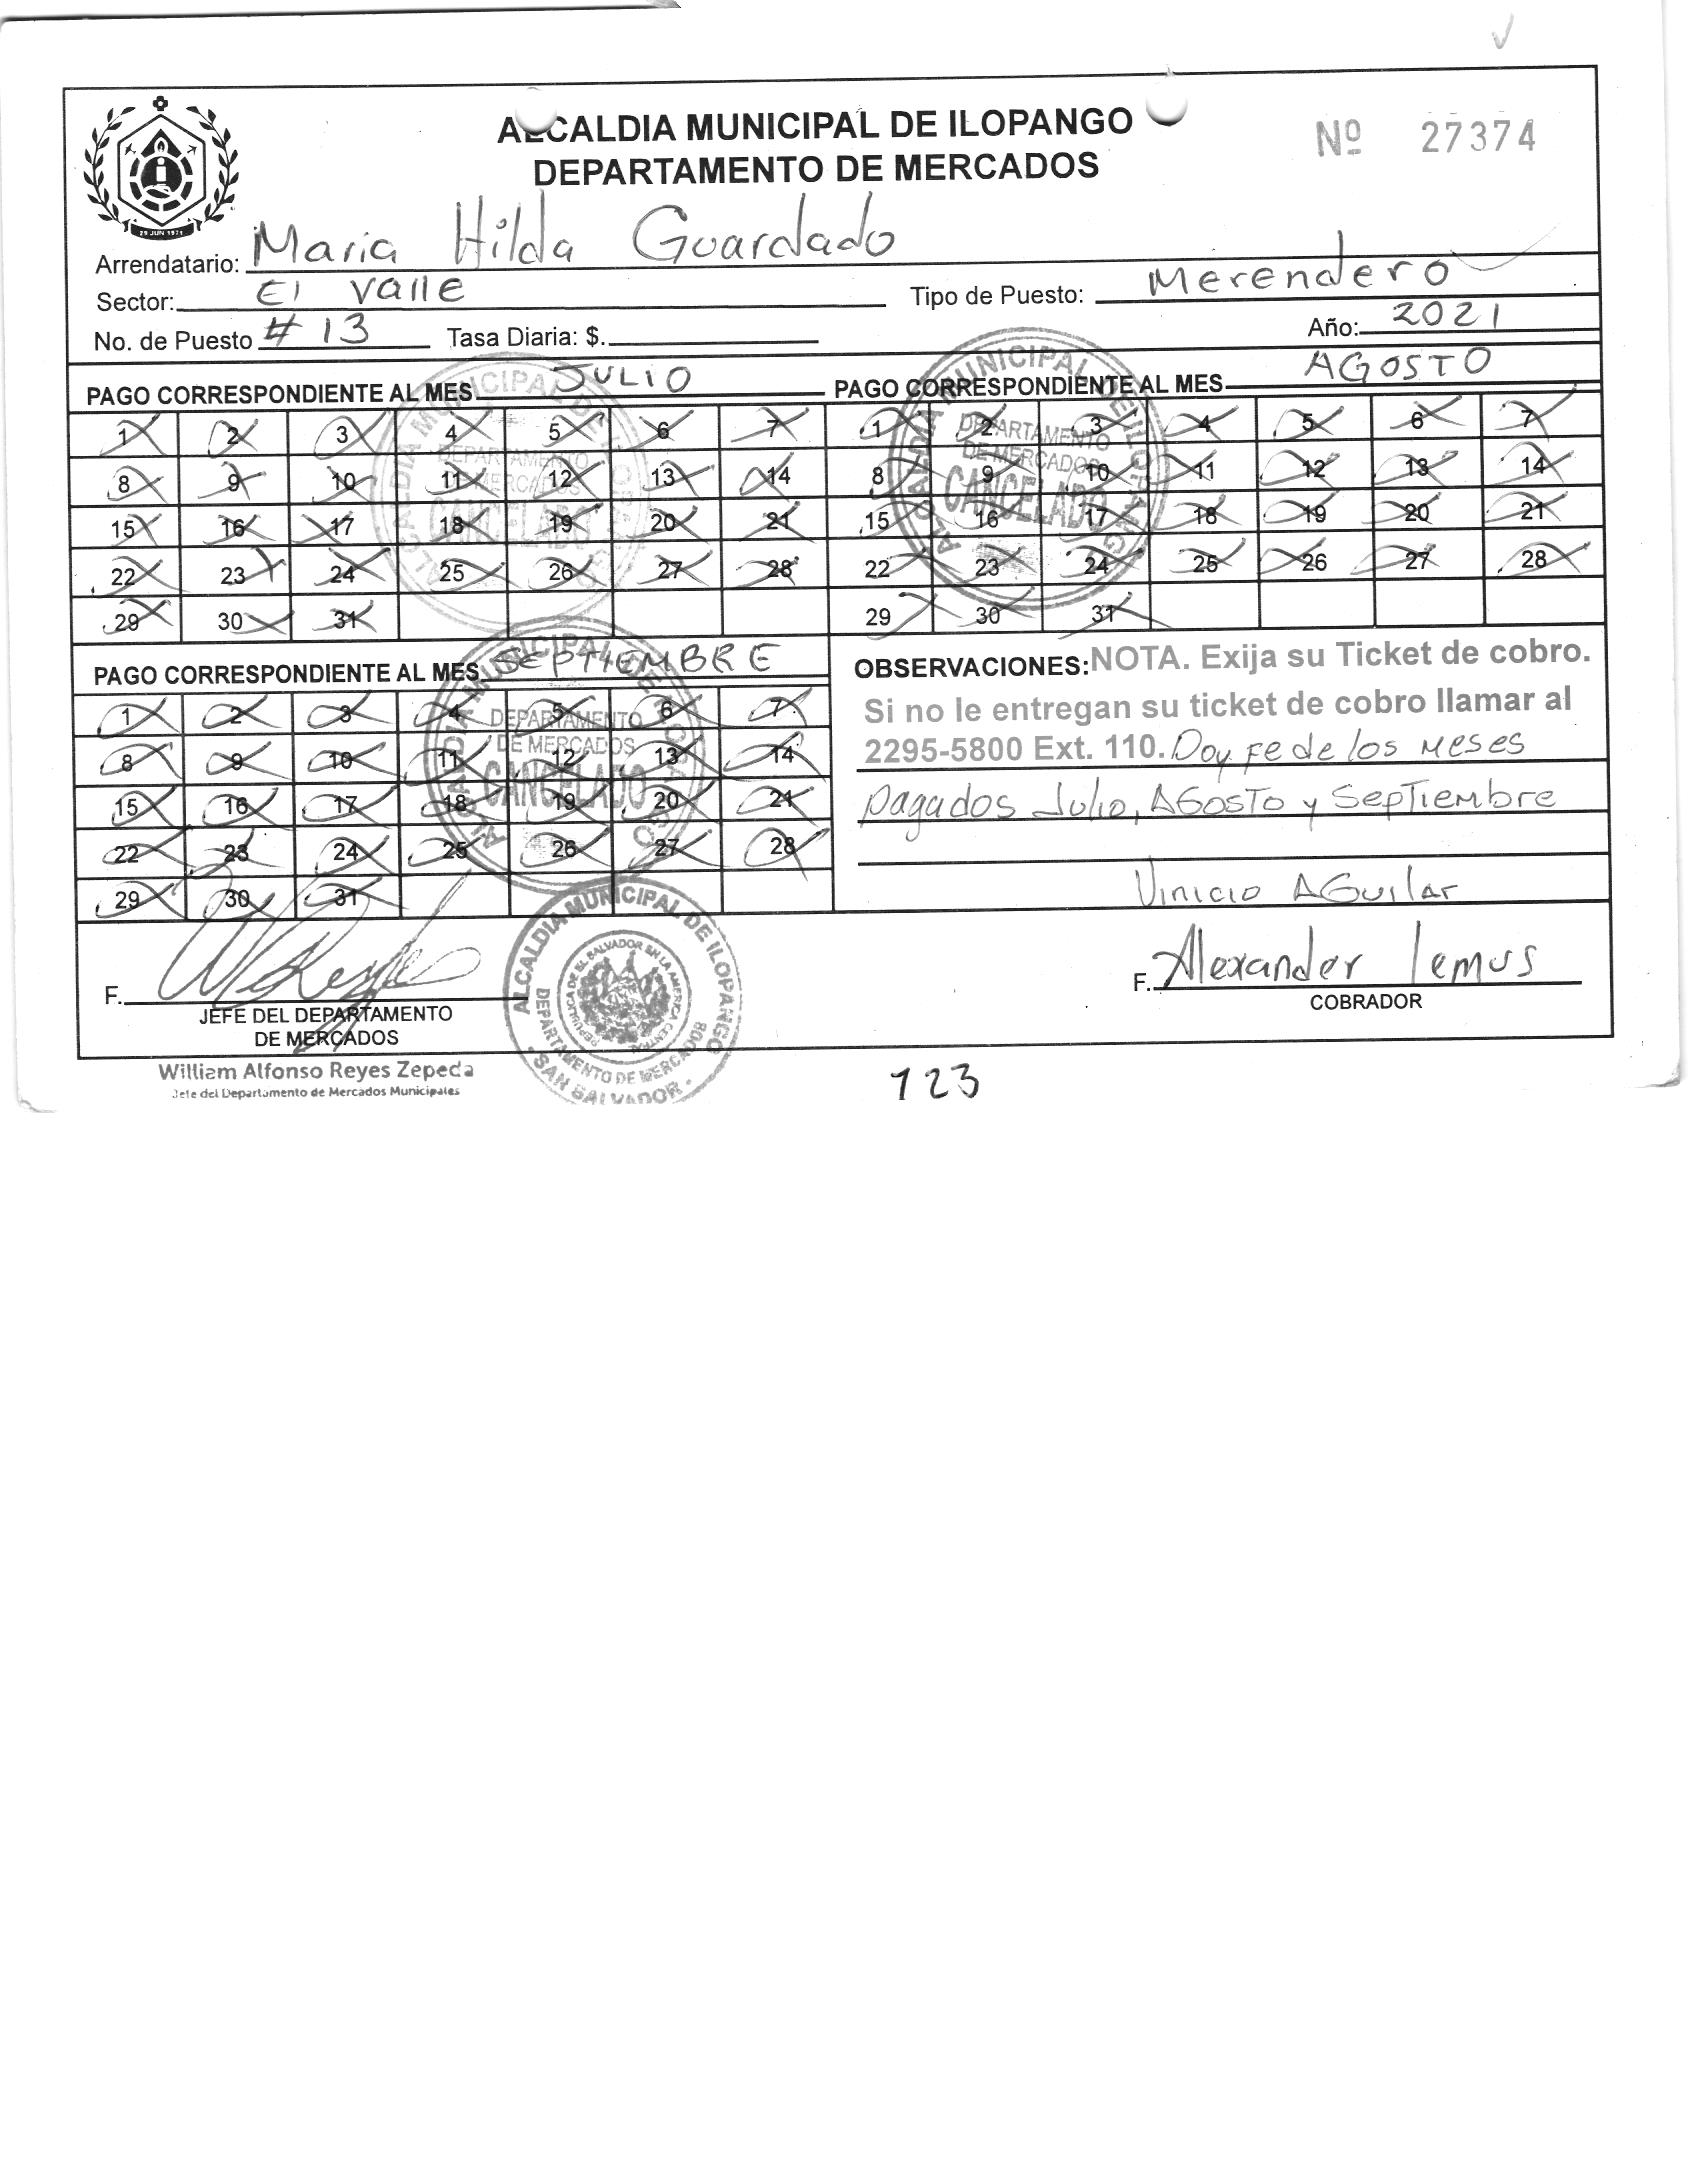 ALCALDIA MUNICIPAL DE ILOPANGO
DEPARTAMENTO DE MERCADOS
Nº 27374
29 JUN 1971
Arrendatario: Maria Hilda Guardado
Sector: El Valle Tipo de Puesto: Merendero
No. de Puesto # 13 Tasa Diaria: $. Año: 2021
PAGO CORRESPONDIENTE AL MES JULIO
1 2 3 4 5 6 7
8 9 10 11 12 13 14
15 16 17 18 19 20 21
22 23 24 25 26 27 28
29 30 31
ALCALDIA MUNICIPAL DE ILOPANGO
DEPARTAMENTO
DE MERCADOS
CANCELADO
PAGO CORRESPONDIENTE AL MES AGOSTO
1 2 3 4 5 6 7
8 9 10 11 12 13 14
15 16 17 18 19 20 21
22 23 24 25 26 27 28
29 30 31
ALCALDIA MUNICIPAL DE ILOPANGO
DEPARTAMENTO
DE MERCADOS
CANCELADO
PAGO CORRESPONDIENTE AL MES SEPTIEMBRE
1 2 3 4 5 6 7
8 9 10 11 12 13 14
15 16 17 18 19 20 21
22 23 24 25 26 27 28
29 30 31
ALCALDIA MUNICIPAL DE ILOPANGO
DEPARTAMENTO
DE MERCADOS
CANCELADO
OBSERVACIONES: NOTA. Exija su Ticket de cobro.
Si no le entregan su ticket de cobro llamar al
2295-5800 Ext. 110. Doy fe de los meses
pagados Julio, AGosTo y SepTiembre
Vinicio AGuilar
F.
JEFE DEL DEPARTAMENTO
DE MERCADOS
William Alfonso Reyes Zepeda
Jefe del Departamento de Mercados Municipales
ALCALDIA MUNICIPAL DE ILOPANGO
REPUBLICA DE EL SALVADOR EN LA AMERICA CENTRAL
DEPARTAMENTO DE MERCADOS
SAN SALVADOR
F. Alexander lemus
COBRADOR
123